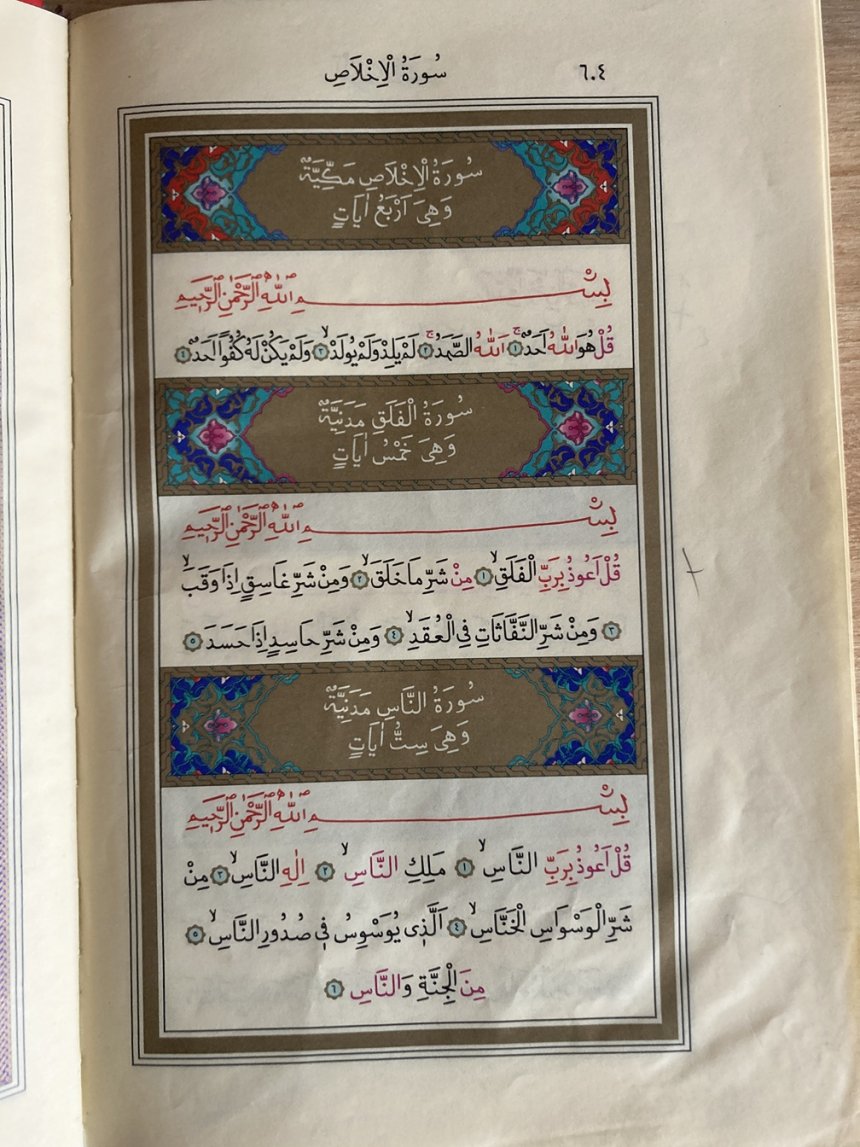 ٦٠٤
سُورَةُ الْاِخْلَاصِ
سُورَةُ الْاِخْلَاصِ مَكِّيَّةٌ
وَهِىَ اَرْبَعُ اٰيَاتٍ
بِسْمِ اللّٰهِ الرَّحْمٰنِ الرَّحِيمِ
قُلْ هُوَ اللّٰهُ اَحَدٌۚ ﴿١﴾ اَللّٰهُ الصَّمَدُۚ ﴿٢﴾ لَمْ يَلِدْ وَلَمْ يُولَدْۙ ﴿٣﴾ وَلَمْ يَكُنْ لَهُ كُفُوًا اَحَدٌ ﴿٤﴾
سُورَةُ الْفَلَقِ مَدَنِيَّةٌ
وَهِىَ خَمْسُ اٰيَاتٍ
بِسْمِ اللّٰهِ الرَّحْمٰنِ الرَّحِيمِ
قُلْ اَعُوذُ بِرَبِّ الْفَلَقِۙ ﴿١﴾ مِنْ شَرِّ مَا خَلَقَۙ ﴿٢﴾ وَمِنْ شَرِّ غَاسِقٍ اِذَا وَقَبَۙ
﴿٣﴾ وَمِنْ شَرِّ النَّفَّاثَاتِ فِى الْعُقَدِۙ ﴿٤﴾ وَمِنْ شَرِّ حَاسِدٍ اِذَا حَسَدَ ﴿٥﴾
سُورَةُ النَّاسِ مَدَنِيَّةٌ
وَهِىَ سِتُّ اٰيَاتٍ
بِسْمِ اللّٰهِ الرَّحْمٰنِ الرَّحِيمِ
قُلْ اَعُوذُ بِرَبِّ النَّاسِۙ ﴿١﴾ مَلِكِ النَّاسِۙ ﴿٢﴾ اِلٰهِ النَّاسِۙ ﴿٣﴾ مِنْ
شَرِّ الْوَسْوَاسِ الْخَنَّاسِۙ ﴿٤﴾ اَلَّذِى يُوَسْوِسُ فِى صُدُورِ النَّاسِۙ ﴿٥﴾
مِنَ الْجِنَّةِ وَالنَّاسِ ﴿٦﴾